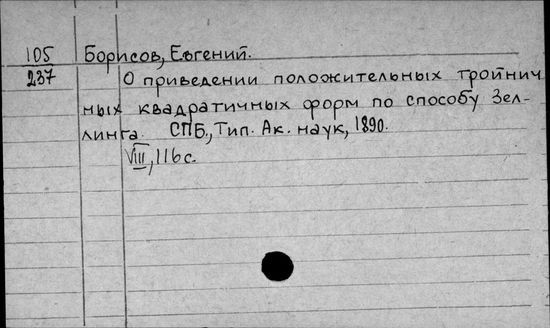 105 Борисов, Евгений.
237 О приведении положительных тройнич
ных квадратичных форм по способу Зел-
линга. СПБ., Тип. Ак. наук, 1890.
VIII, 116 с.